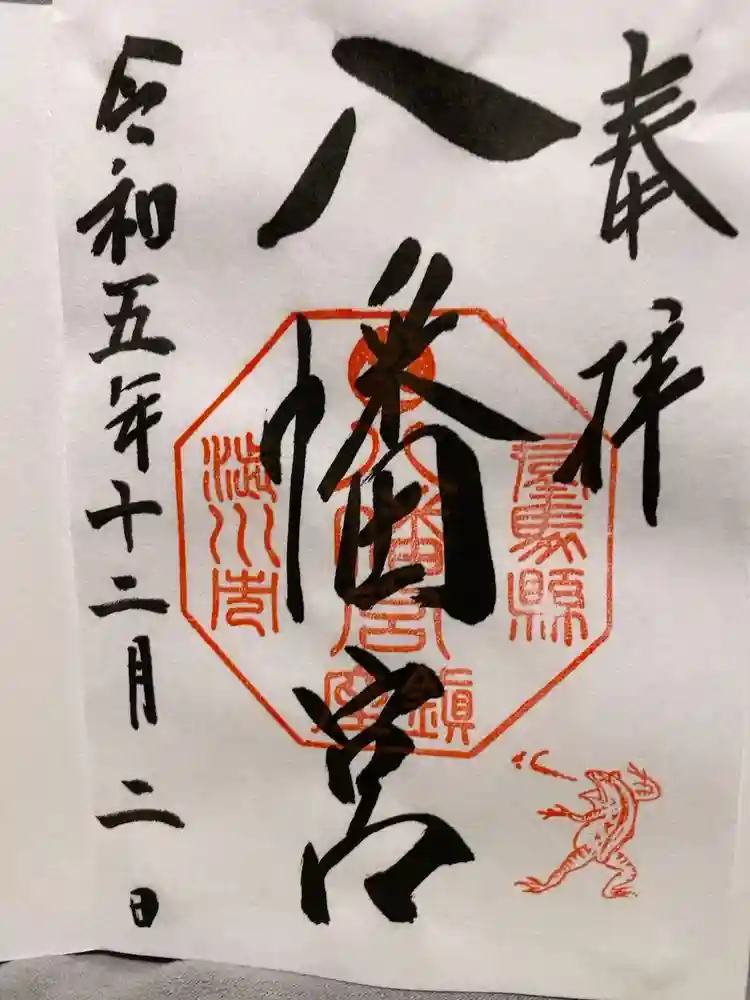 奉拝
八幡宮
群馬縣
八幡宮
鎮座
渋川市
令和五年十二月二日